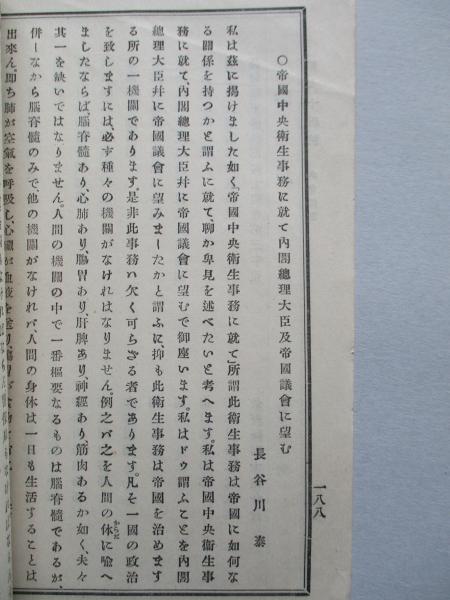 一八八
〇帝國中央衞生事務に就て內閣總理大臣及帝國議會に望む
長谷川泰
私は玆に揭けました如く「帝國中央衞生事務に就て」所謂此衞生事務は帝國に如何な
る關係を持つかと謂ふに就て、聊か卑見を述べたいと考へます。私は帝國中央衞生事
務に就て、內閣總理大臣幷に帝國議會に望むで御座います。私はドウ謂ふことを內閣
總理大臣幷に帝國議會に望みましたかと謂ふに、抑も此衞生事務は帝國を治めます
る所の一機關であります、是非此事務ハ欠く可らざる者であります。凡そ一國の政治
を致しますには、必ず種々の機關がなけれはなりません、例之バ之を人間の体に喩へ
からだ
ましたならば、腦脊髓あり、心肺あり、腸胃あり、肝脾あり、神經あり、筋肉あるか如く、夫々
其一を缺いではなりません。人間の機關の中で一番樞要なるものは腦脊髓であるが、
併しなから腦脊髓のみで、他の機關がなけれバ、人間の身体は一日も生活することは
出來ん、卽ち肺が空氣を呼吸し、心臟が血液を